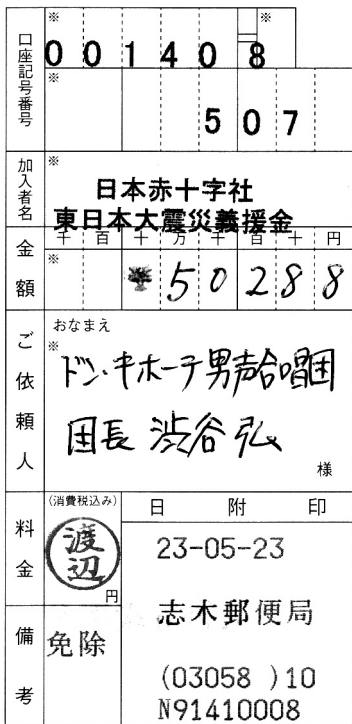 口座記号番号
※
※
001408
※
507
加入者名
※
日本赤十字社
東日本大震災義援金
金額
千 百 十 万 千 百 十 円
※
50288
ご依頼人
おなまえ
※
ドン・キホーテ男声合唱団
団長 渋谷 弘
様
料金
(消費税込み)
渡辺
円
日附印
23-05-23
志木郵便局
(03058 )10
N91410008
備考
免除